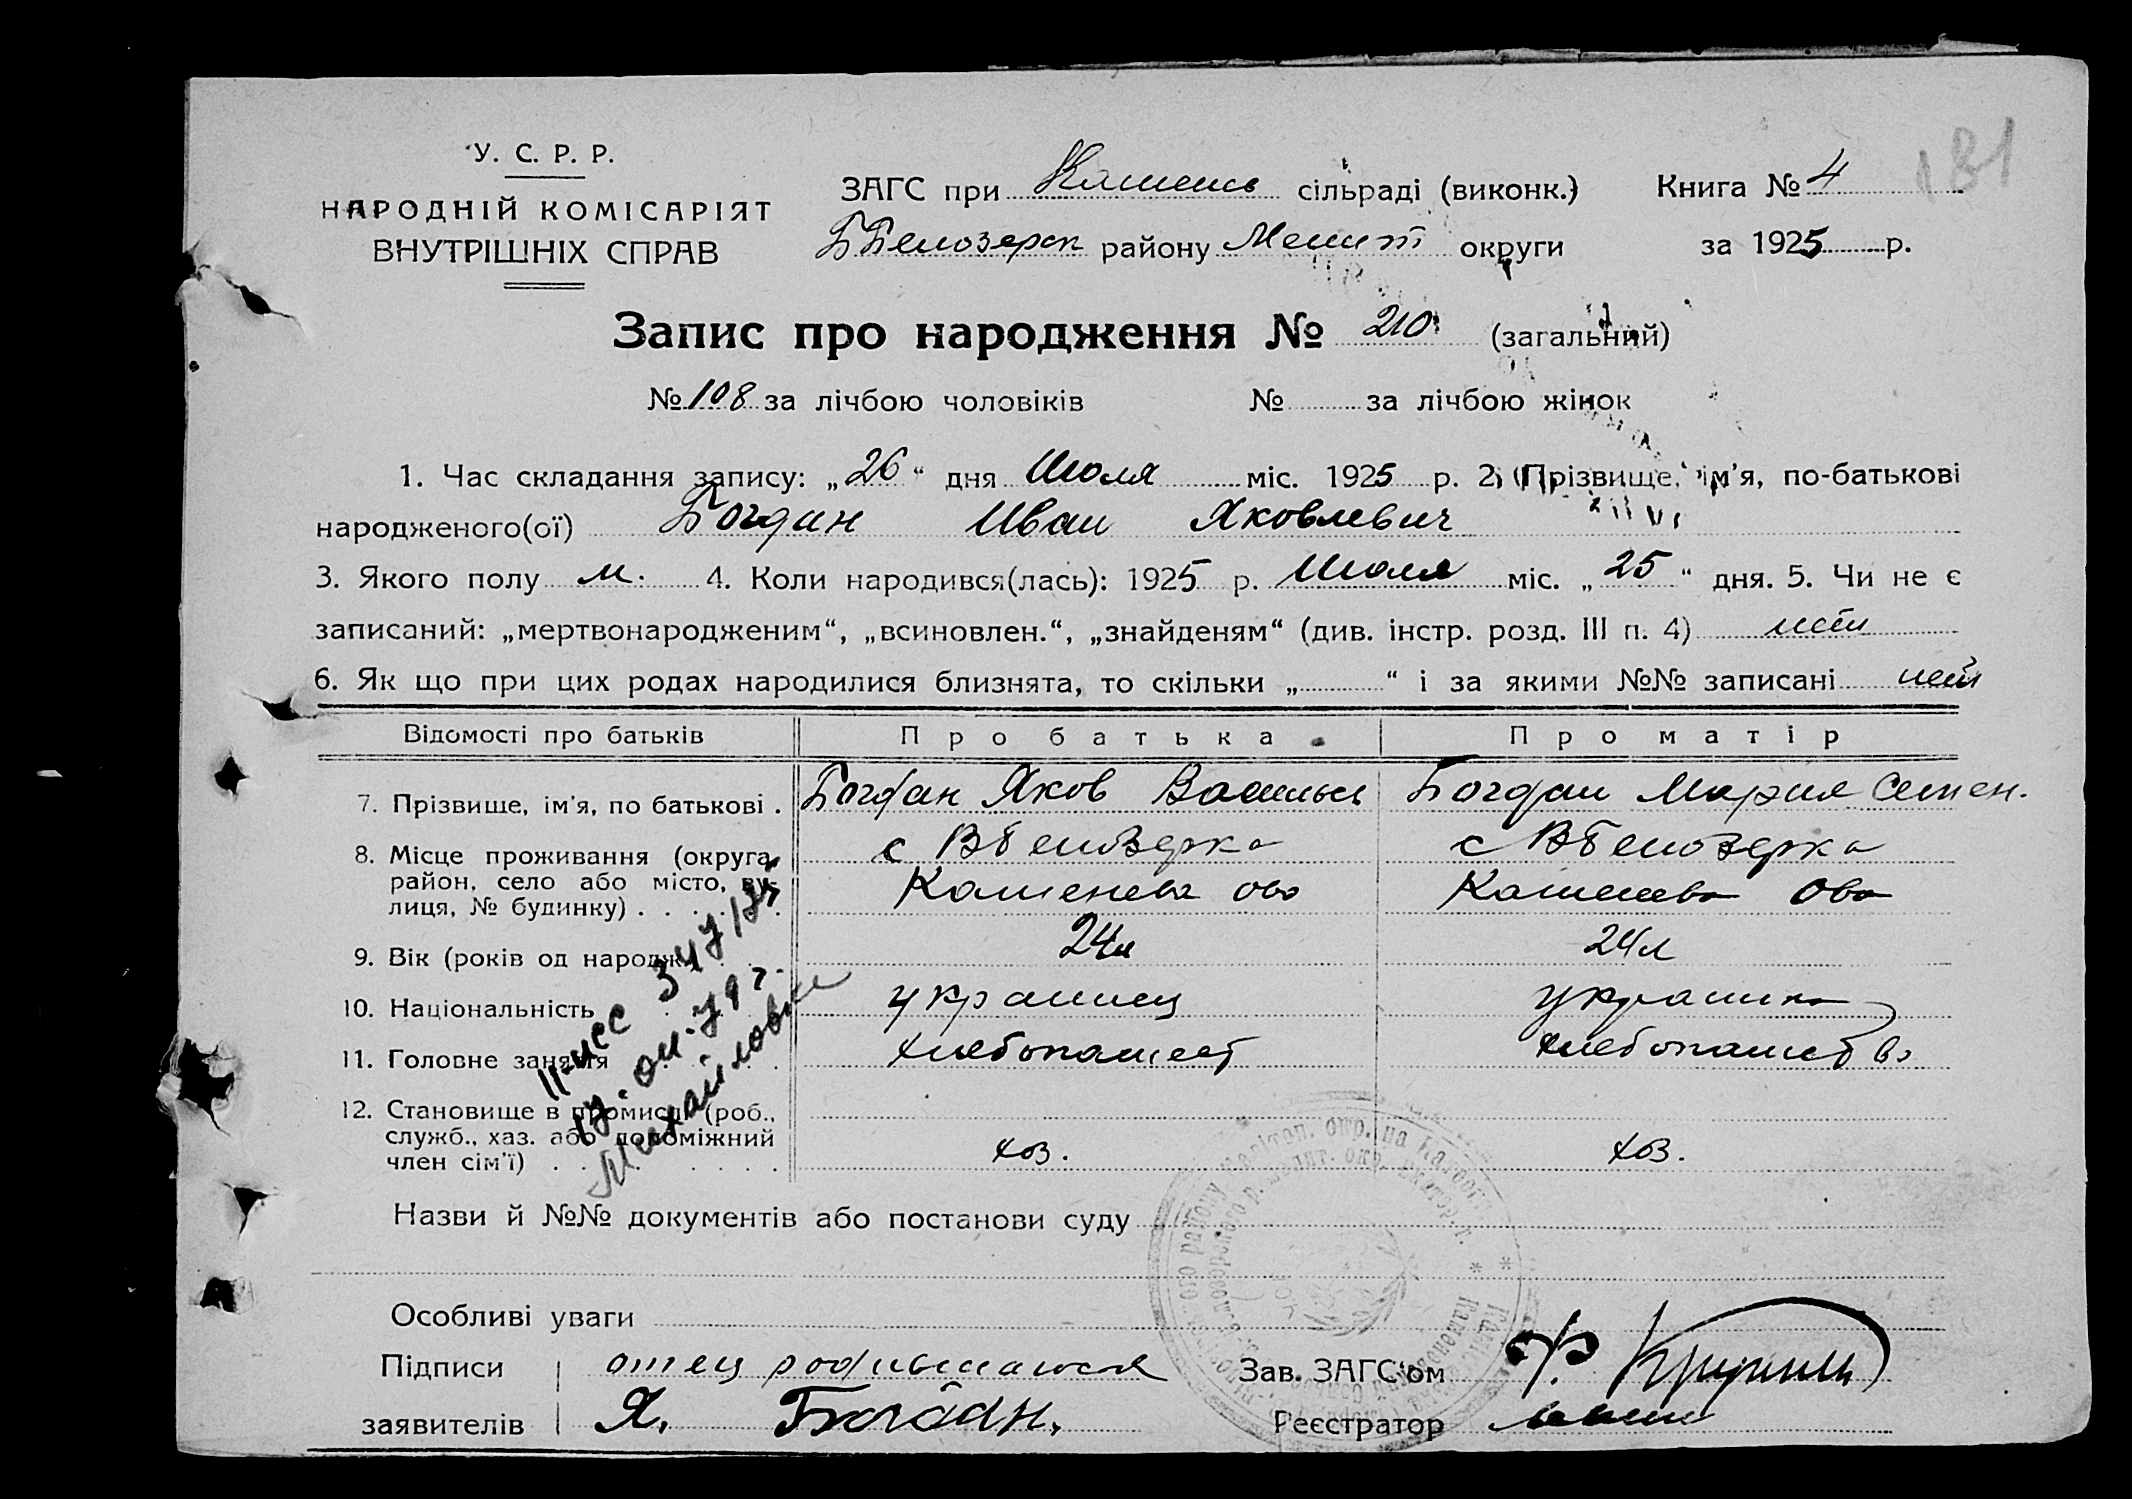 У. С. Р. Р.
НАРОДНІЙ КОМІСАРІЯТ
ВНУТРІШНІХ СПРАВ
ЗАГС при Каменск сільраді (виконк.)
ББелозерск району Мелит округи
Книга № 4
за 1925 р.
181
Запис про народження № 210 (загальний)
№ 108 за лічбою чоловіків № за лічбою жінок
1. Час складання запису: „26“ дня Июля міс. 1925 р. 2. (Прізвище, ім'я, по-батькові
народженого(ої) Богдан Иван Яковлевич
3. Якого полу м. 4. Коли народився(лась): 1925 р. Июля міс. „25“ дня. 5. Чи не є
записаний: „мертвонародженим“, „всиновлен.“, „знайденям“ (див. інстр. розд. III п. 4) нет
6. Як що при цих родах народилися близнята, то скільки „ “ і за якими №№ записані нет
Відомості про батьків Про батька Про матір
7. Прізвище, ім'я, по батькові . Богдан Яков Васильев Богдан Мария Семен.
8. Місце проживання (округа, с ВБелозерка с ВБелозерка
район, село або місто, ву-
лиця, № будинку) . . . Каменева ова Каменева Ова
9. Вік (років од народж. 24л 24л
10. Національність украинец украинка
11. Головне заняття хлебопашест хлебопашество
12. Становище в промислі (роб.,
служб., хаз. або допоміжний
член сім'ї) . . . хоз. хоз.
Михайловка
Назви й №№ документів або постанови суду
Особливі уваги
Підписи отец родившагося Зав. ЗАГС'ом
заявителів Я. Богдан. Реєстратор